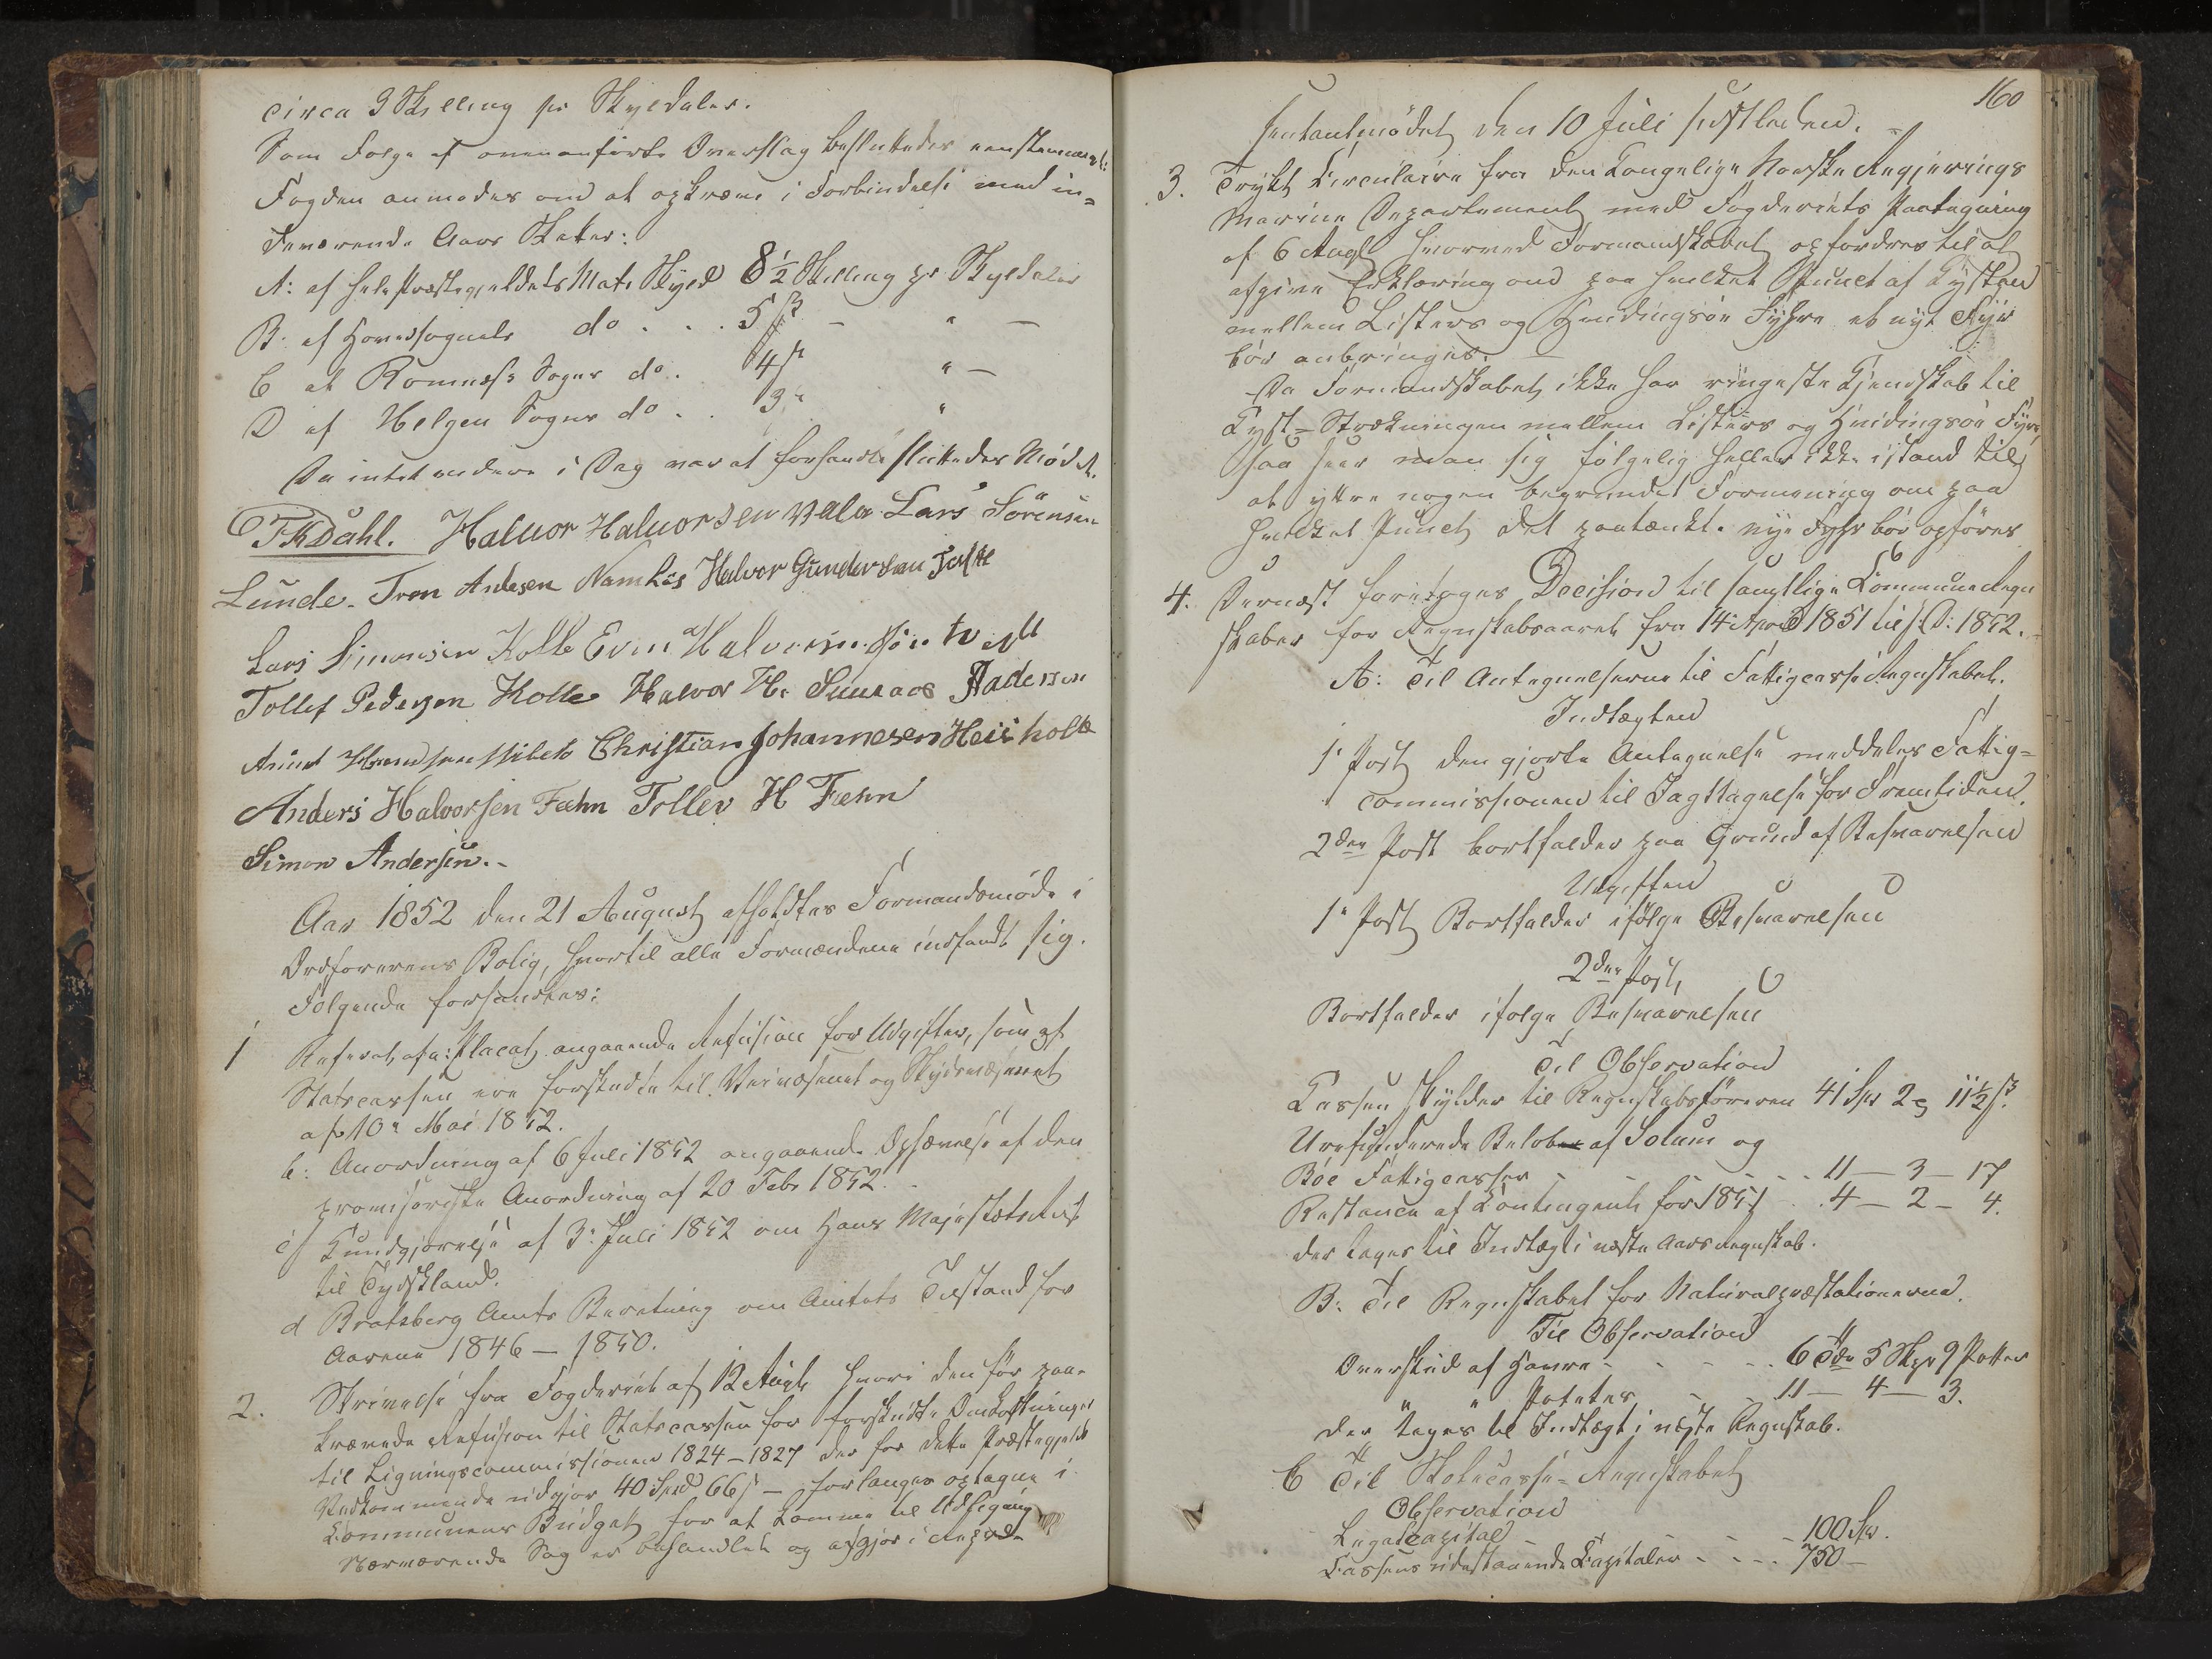 circa 3 Skilling pr Skyldaler.
Som Følge af ovenanførte Overslag besluttedes eenstemmigt:
Fogden anmodes om at opkræve i Forbindelse med in-
deværende Aars Skatter:
A: af hele Præstegjeldets Matr Skyld 8½ Skilling pr Skyldaler
B: af Hovedsognets do . . . 5 ß — " —
C af Romnæs Sogns do . 4 ß " —
D af Helgen Sogns do . . 3 " "
Da intet videre i Dag var at forhandle sluttedes Mødet.
Dahl. Halvor Halvorsen Vala Lars Sörensen
Lunde. Tron Andesen Namløs Halvor Gundersen
Lars Simonsen Kolle Even Halvorsen
Tollef Pedersen Kolle Halvor H. Aadersen
Christian Johannesen Heiiholt
Anders Halvorsen Fæhn Tollev H Fæhn
Simon Andersen.-
Aar 1852 den 21 August afholdtes Formandsmöde i
Ordførerens Bolig, hvortil alle Formændene indfandt sig.
Følgende forhandles:
1 Referat af a: Placat angaaende Refusion for Udgifter, som af
Statscassen ere forskudte til Veivæsenet og Skydsvæsenet
af 10 Mai 1852.
b: Anordning af 6 Juli 1852 angaaende Ophævelse af den
provisoriske Anordning af 20 Febr 1852.
c) Kundgjørelse af 3: Juli 1852 om Hans Majestæts Reise
til Tydskland.
d Bratsberg Amts Beretning om Amtets Tilstand for
Aarene 1846 — 1850.
2. Skrivelse fra Fogderiet af 12 Augt hvori den før paa-
krævede Refusion til Statscassen for forskudte Omkostninger
til Ligningscommissionen 1824 – 1827 der for dette Præstegjelds
Vedkommende udgjør 40 Spd 66 ß — forlanges optagne i
Kommunens Budget for at komme til Udligning
Nærværende Sag er behandlet og afgjort i Repræ-
160
sentantmødet den 10 Juli sidstleden. -
3. Trykt Circulaire fra den Kongelige Norske Regjerings
Marine Departement med Fogderiets Paategning
af 6 Augt hvorved Formandskabet opfordres til at
afgive Erklæring om paa hvilket Punct af Kysten
mellem Listers og Hvidingsöe Fyhre et nyt Fyr
bör anbringes.
Da Formandskabet ikke har ringeste Kjendskab til
Kyst-Strækningen mellem Listers og Hvidingsöe Fyre,
saa seer man sig følgelig heller ikke istand til
at yttre nogen begrundet Formening om paa
hvilket Punct det paatænkte nye Fyhr bör opføres
4. Dernæst foretoges Decision til samtlige Kommune Regn
skaber for Regnskabsaaret fra 14 April 1851 til s: D: 1852.
A: Til Antegnelserne til Fattigcasse Regnskabet.
Indtægten
1. Post den gjorte Antegnelse meddeles Fattig-
commissionen til Iagttagelse for Fremtiden.
2den Post bortfalder paa Grund af Besvarelsen
Udgiften
1. Post Bortfalder ifølge Besvarelsen
2den Post,
Bortfalder ifølge Besvarelsen
Til Observation
Kassen skylder til Regnskabsføreren 41 Spd 2 11½ ß.
Urefunderede Beløb af Solum og
Böe Fattigcasser - - - - 11 — 3 — 17
Restance af Kontingent for 1851 . . 4 — 2 — 4.
der tages til Indtægt i næste Aars Regnskab.
B: Til Regnskabet for Naturalpræstationerne.
Til Observation
Overskud af Havre - - - - 6 Tdr 5 Skpr 9 Potter
" " Poteter - - 11 — 4 — 3.
der tages til Indtægt i næste Regnskab.
C Til Skolecasse-Regnskabet
Observation
Legatcapital - - - - 100 Spd.
Kassens udestaaende Capitaler - - - - 750 —